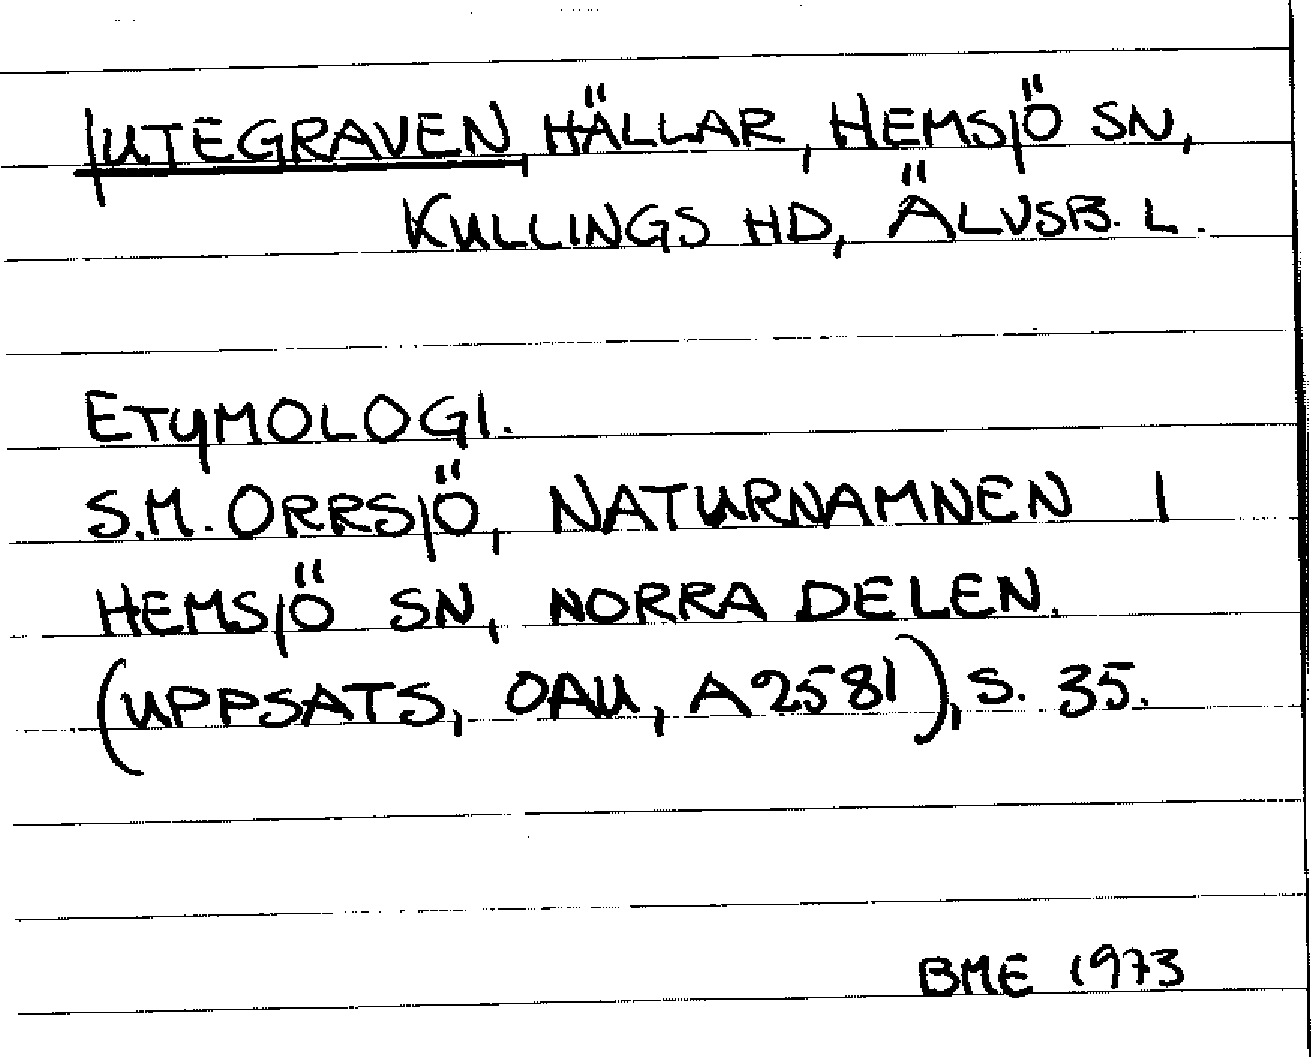 JUTEGRAVEN HÄLLAR, HEMSJÖ SN,
KULLINGS HD, ÄLVSB. L.
ETYMOLOGI.
S.M. ORRSJÖ, NATURNAMNEN I
HEMSJÖ SN, NORRA DELEN.
(UPPSATS, OAU, A2581), S. 35.
BME 1973